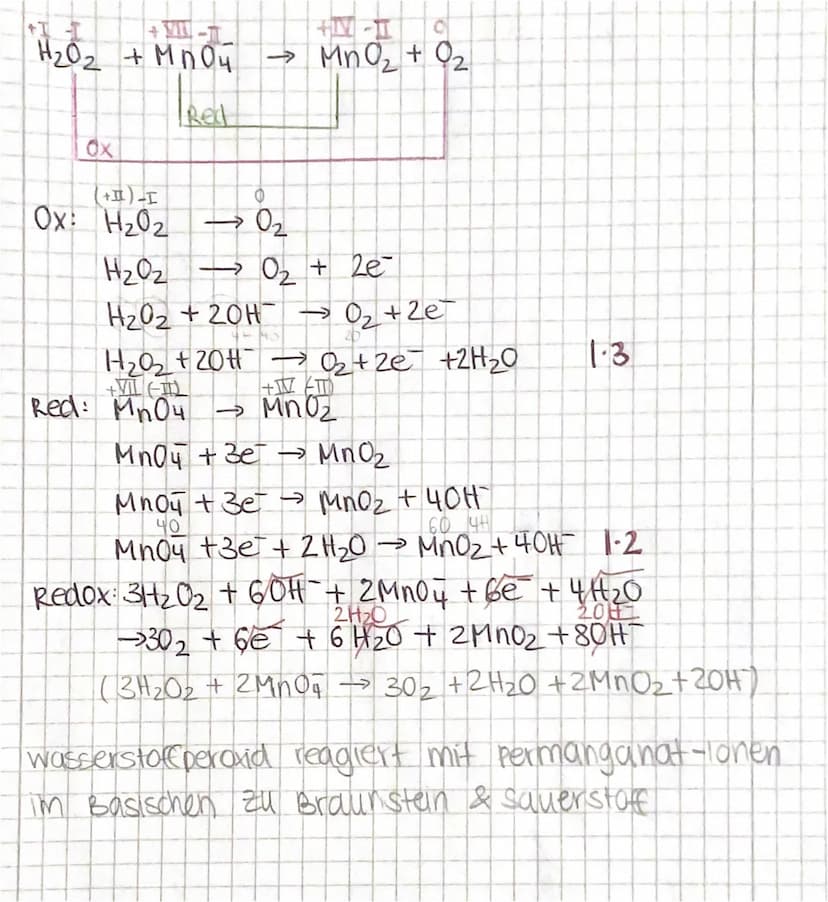 +I -I +VII -II +IV -II 0
H₂O₂ + MnO₄⁻ → MnO₂ + O₂
Red
Ox
(+II) -I 0
Ox: H₂O₂ → O₂
H₂O₂ → O₂ + 2e⁻
H₂O₂ + 2OH⁻ → O₂ + 2e⁻
H₂O₂ + 2OH⁻ → O₂ + 2e⁻ + 2H₂O |·3
+VII (-II) +IV (-II)
Red: MnO₄⁻ → MnO₂
MnO₄⁻ + 3e⁻ → MnO₂
MnO₄⁻ + 3e⁻ → MnO₂ + 4OH⁻
4O 6O 4H
MnO₄⁻ + 3e⁻ + 2H₂O → MnO₂ + 4OH⁻ |·2
Redox: 3H₂O₂ + 6OH⁻ + 2MnO₄⁻ + 6e⁻ + 4H₂O
2H₂O 2OH⁻
→ 3O₂ + 6e⁻ + 6H₂O + 2MnO₂ + 8OH⁻
(3H₂O₂ + 2MnO₄⁻ → 3O₂ + 2H₂O + 2MnO₂ + 2OH⁻)
Wasserstoffperoxid reagiert mit Permanganat-Ionen
im Basischen zu Braunstein & Sauerstoff